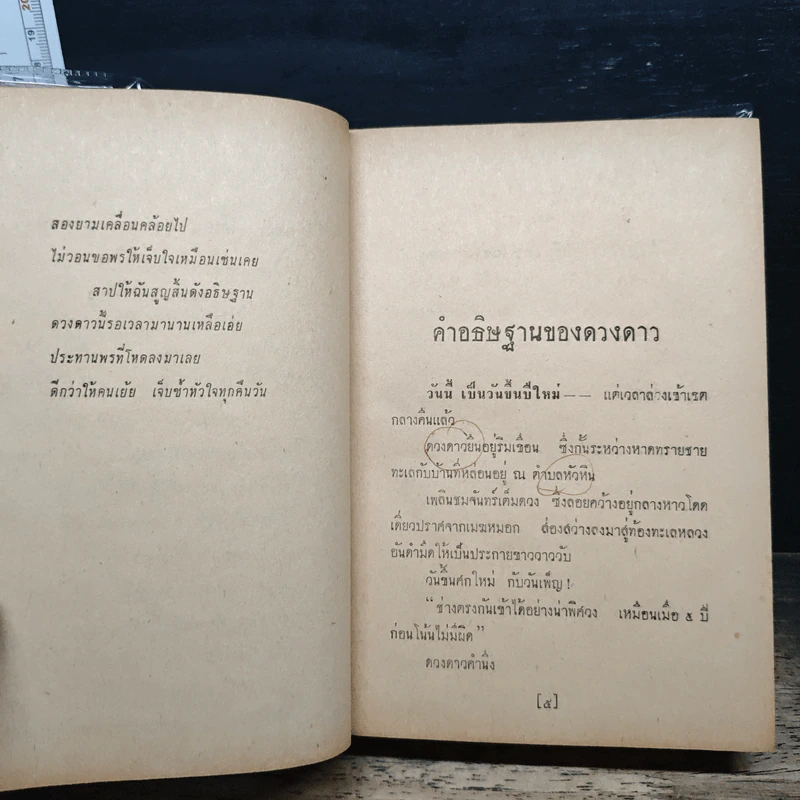 20
19
18
สองยามเคลื่อนคล้อยไป
ไม่วอนขอพรให้เจ็บใจเหมือนเช่นเคย
สาปให้ฉันสูญสิ้นดังอธิษฐาน
ดวงดาวนี้รอเวลามานานเหลือเอ่ย
ประทานพรที่โหดลงมาเลย
ดีกว่าให้คนเย้ย เจ็บช้ำหัวใจทุกคืนวัน
คำอธิษฐานของดวงดาว
วันนี้ เป็นวันขึ้นปีใหม่ — — แต่เวลาล่วงเข้าเขต
กลางคืนแล้ว
ดวงดาวยืนอยู่ริมเขื่อน ซึ่งกั้นระหว่างหาดทรายชาย
ทะเลกับบ้านที่หล่อนอยู่ ณ ตำบลหัวหิน
เพลินชมจันทร์เต็มดวง ซึ่งลอยคว้างอยู่กลางหาวโดด
เดี่ยวปราศจากเมฆหมอก ส่องสว่างลงมาสู่ท้องทะเลหลวง
อันดำมืดให้เป็นประกายขาววาววับ
วันขึ้นศกใหม่ กับวันเพ็ญ!
“ช่างตรงกันเข้าได้อย่างน่าพิศวง เหมือนเมื่อ ๕ ปี
ก่อนโน้นไม่มีผิด”
ดวงดาวคำนึง
[๕]